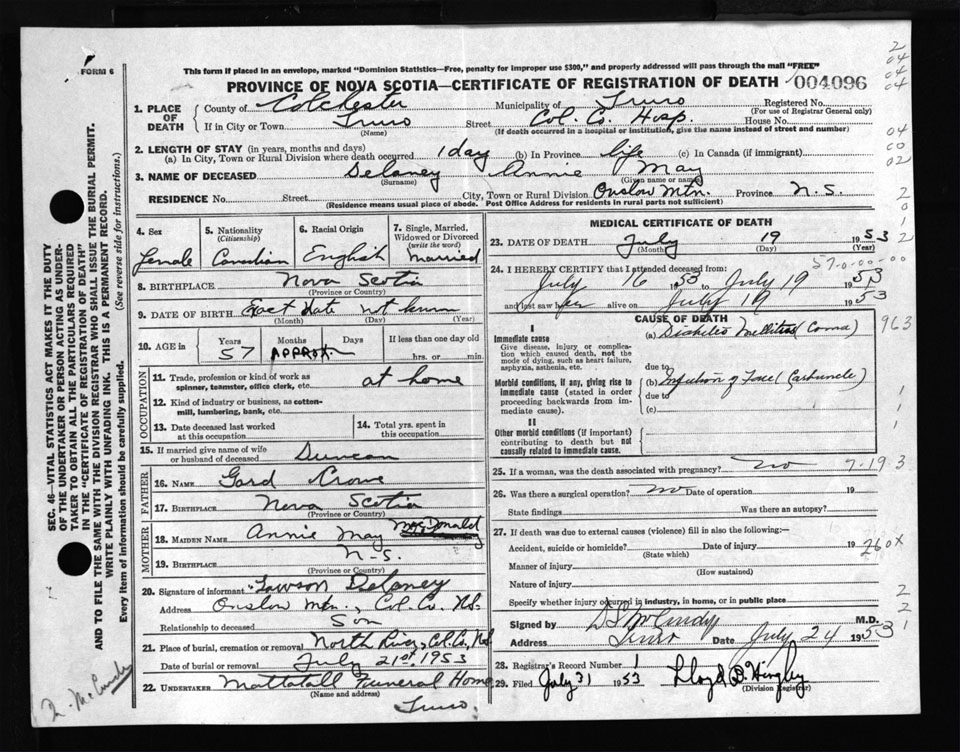 FORM 6
This form if placed in an envelope, marked "Dominion Statistics—Free, penalty for improper use $300," and properly addressed will pass through the mail "FREE"
PROVINCE OF NOVA SCOTIA—CERTIFICATE OF REGISTRATION OF DEATH 004096
1. PLACE OF DEATH County of Colchester Municipality of Truro Registered No.
(For use of Registrar General only)
If in City or Town Truro Street Col. Co. Hosp. House No.
(Name) (If death occurred in a hospital or institution, give the name instead of street and number)
2. LENGTH OF STAY (in years, months and days)
(a) In City, Town or Rural Division where death occurred 1 day (b) In Province life (c) In Canada (if immigrant)
3. NAME OF DECEASED Delaney Annie May
(Surname) (Given name or names)
RESIDENCE No. Street City, Town or Rural Division Onslow Mtn. Province N.S.
(Residence means usual place of abode. Post Office Address for residents in rural parts not sufficient)
4. Sex Female
5. Nationality (Citizenship) Canadian
6. Racial Origin English
7. Single, Married, Widowed or Divorced (write the word) Married
8. BIRTHPLACE Nova Scotia
(Province or Country)
9. DATE OF BIRTH Exact date not known
(Month) (Day) (Year)
10. AGE in Years Months Days If less than one day old
57 APPROX. hrs. or min.
OCCUPATION
11. Trade, profession or kind of work as spinner, teamster, office clerk, etc. at home
12. Kind of industry or business, as cotton-mill, lumbering, bank, etc.
13. Date deceased last worked at this occupation
14. Total yrs. spent in this occupation
15. If married give name of wife or husband of deceased Duncan
FATHER
16. NAME Gord Crowe
17. BIRTHPLACE Nova Scotia
(Province or Country)
MOTHER
18. MAIDEN NAME Annie May McDonald
19. BIRTHPLACE N.S.
(Province or Country)
20. Signature of informant Lawson Delaney
Address Onslow Mtn., Col. Co. N.S.
Relationship to deceased Son
21. Place of burial, cremation or removal North River, Col. Co., N.S.
Date of burial or removal July 21st, 1953
22. UNDERTAKER Mattatall Funeral Home
(Name and address)
Truro.
MEDICAL CERTIFICATE OF DEATH
23. DATE OF DEATH July 19 1953
(Month) (Day) (Year)
57-0-00-00
24. I HEREBY CERTIFY that I attended deceased from:
July 16 1953 to July 19 1953
and last saw her alive on July 19 1953
CAUSE OF DEATH
I
Immediate cause
Give disease, injury or complication which caused death, not the mode of dying, such as heart failure, asphyxia, asthenia, etc.
(a) Diabetes Mellitus (Coma)
due to
Morbid conditions, if any, giving rise to immediate cause (stated in order proceeding backwards from immediate cause).
(b) Infection of Face (Carbuncle)
due to
(c)
II
Other morbid conditions (if important) contributing to death but not causally related to immediate cause.
963
25. If a woman, was the death associated with pregnancy? no 7-193
26. Was there a surgical operation? no Date of operation 19
State findings Was there an autopsy?
27. If death was due to external causes (violence) fill in also the following:—
Accident, suicide or homicide? Date of injury 19 260X
(State which)
Manner of injury
(How sustained)
Nature of injury
Specify whether injury occurred in industry, in home, or in public place
Signed by M.D.
Address Truro Date July 24 1953
28. Registrar's Record Number 1
29. Filed July 31 1953 Lloyd B. Hingley
(Division Registrar)
SEC. 46—VITAL STATISTICS ACT MAKES IT THE DUTY OF THE UNDERTAKER OR PERSON ACTING AS UNDERTAKER TO OBTAIN ALL THE PARTICULARS REQUIRED IN THE "CERTIFICATE OF REGISTRATION OF DEATH" AND TO FILE THE SAME WITH THE DIVISION REGISTRAR WHO SHALL ISSUE THE BURIAL PERMIT.
WRITE PLAINLY WITH UNFADING INK. THIS IS A PERMANENT RECORD.
Every item of information should be carefully supplied. (See reverse side for instructions.)
2
04
04
04
04
00
02
2
0
1
2
1
1
1
2
2
1